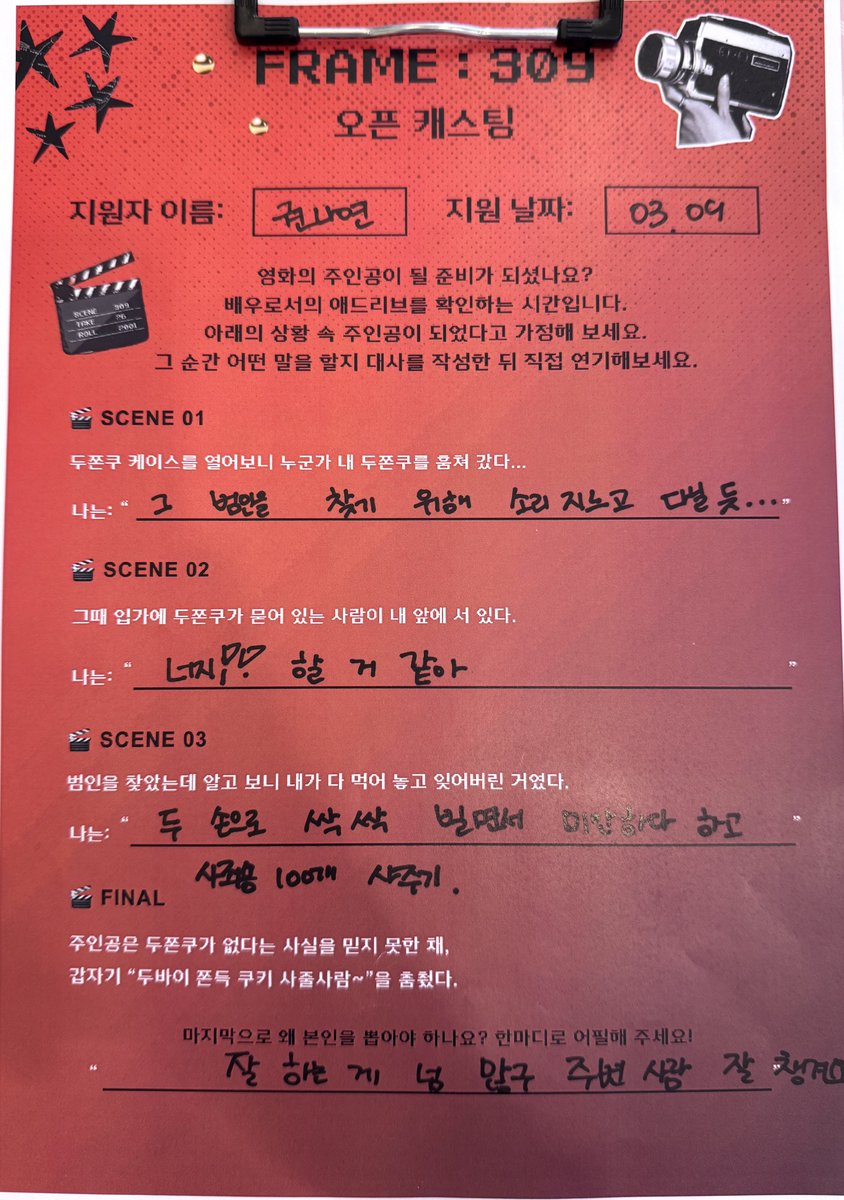 FRAME : 309
오픈 캐스팅
지원자 이름: 권나연 지원 날짜: 03.09
SCENE 309
TAKE 26
ROLL 2001
영화의 주인공이 될 준비가 되셨나요?
배우로서의 애드리브를 확인하는 시간입니다.
아래의 상황 속 주인공이 되었다고 가정해 보세요.
그 순간 어떤 말을 할지 대사를 작성한 뒤 직접 연기해보세요.
SCENE 01
두쫀쿠 케이스를 열어보니 누군가 내 두쫀쿠를 훔쳐 갔다...
나는: “ 그 범인을 찾기 위해 소리 지느고 다닐 듯... ”
SCENE 02
그때 입가에 두쫀쿠가 묻어 있는 사람이 내 앞에 서 있다.
나는: “ 너지!?!? 할 거 같아 ”
SCENE 03
범인을 찾았는데 알고 보니 내가 다 먹어 놓고 잊어버린 거였다.
나는: “ 두 손으로 싹싹 빌면서 미안하다 하고 ”
100개 사주기.
FINAL
주인공은 두쫀쿠가 없다는 사실을 믿지 못한 채,
갑자기 “두바이 쫀득 쿠키 사줄사람~”을 춤췄다.
마지막으로 왜 본인을 뽑아야 하나요? 한마디로 어필해 주세요!
“ 잘 하는 게 넘 많구 주변 사람 잘 ”